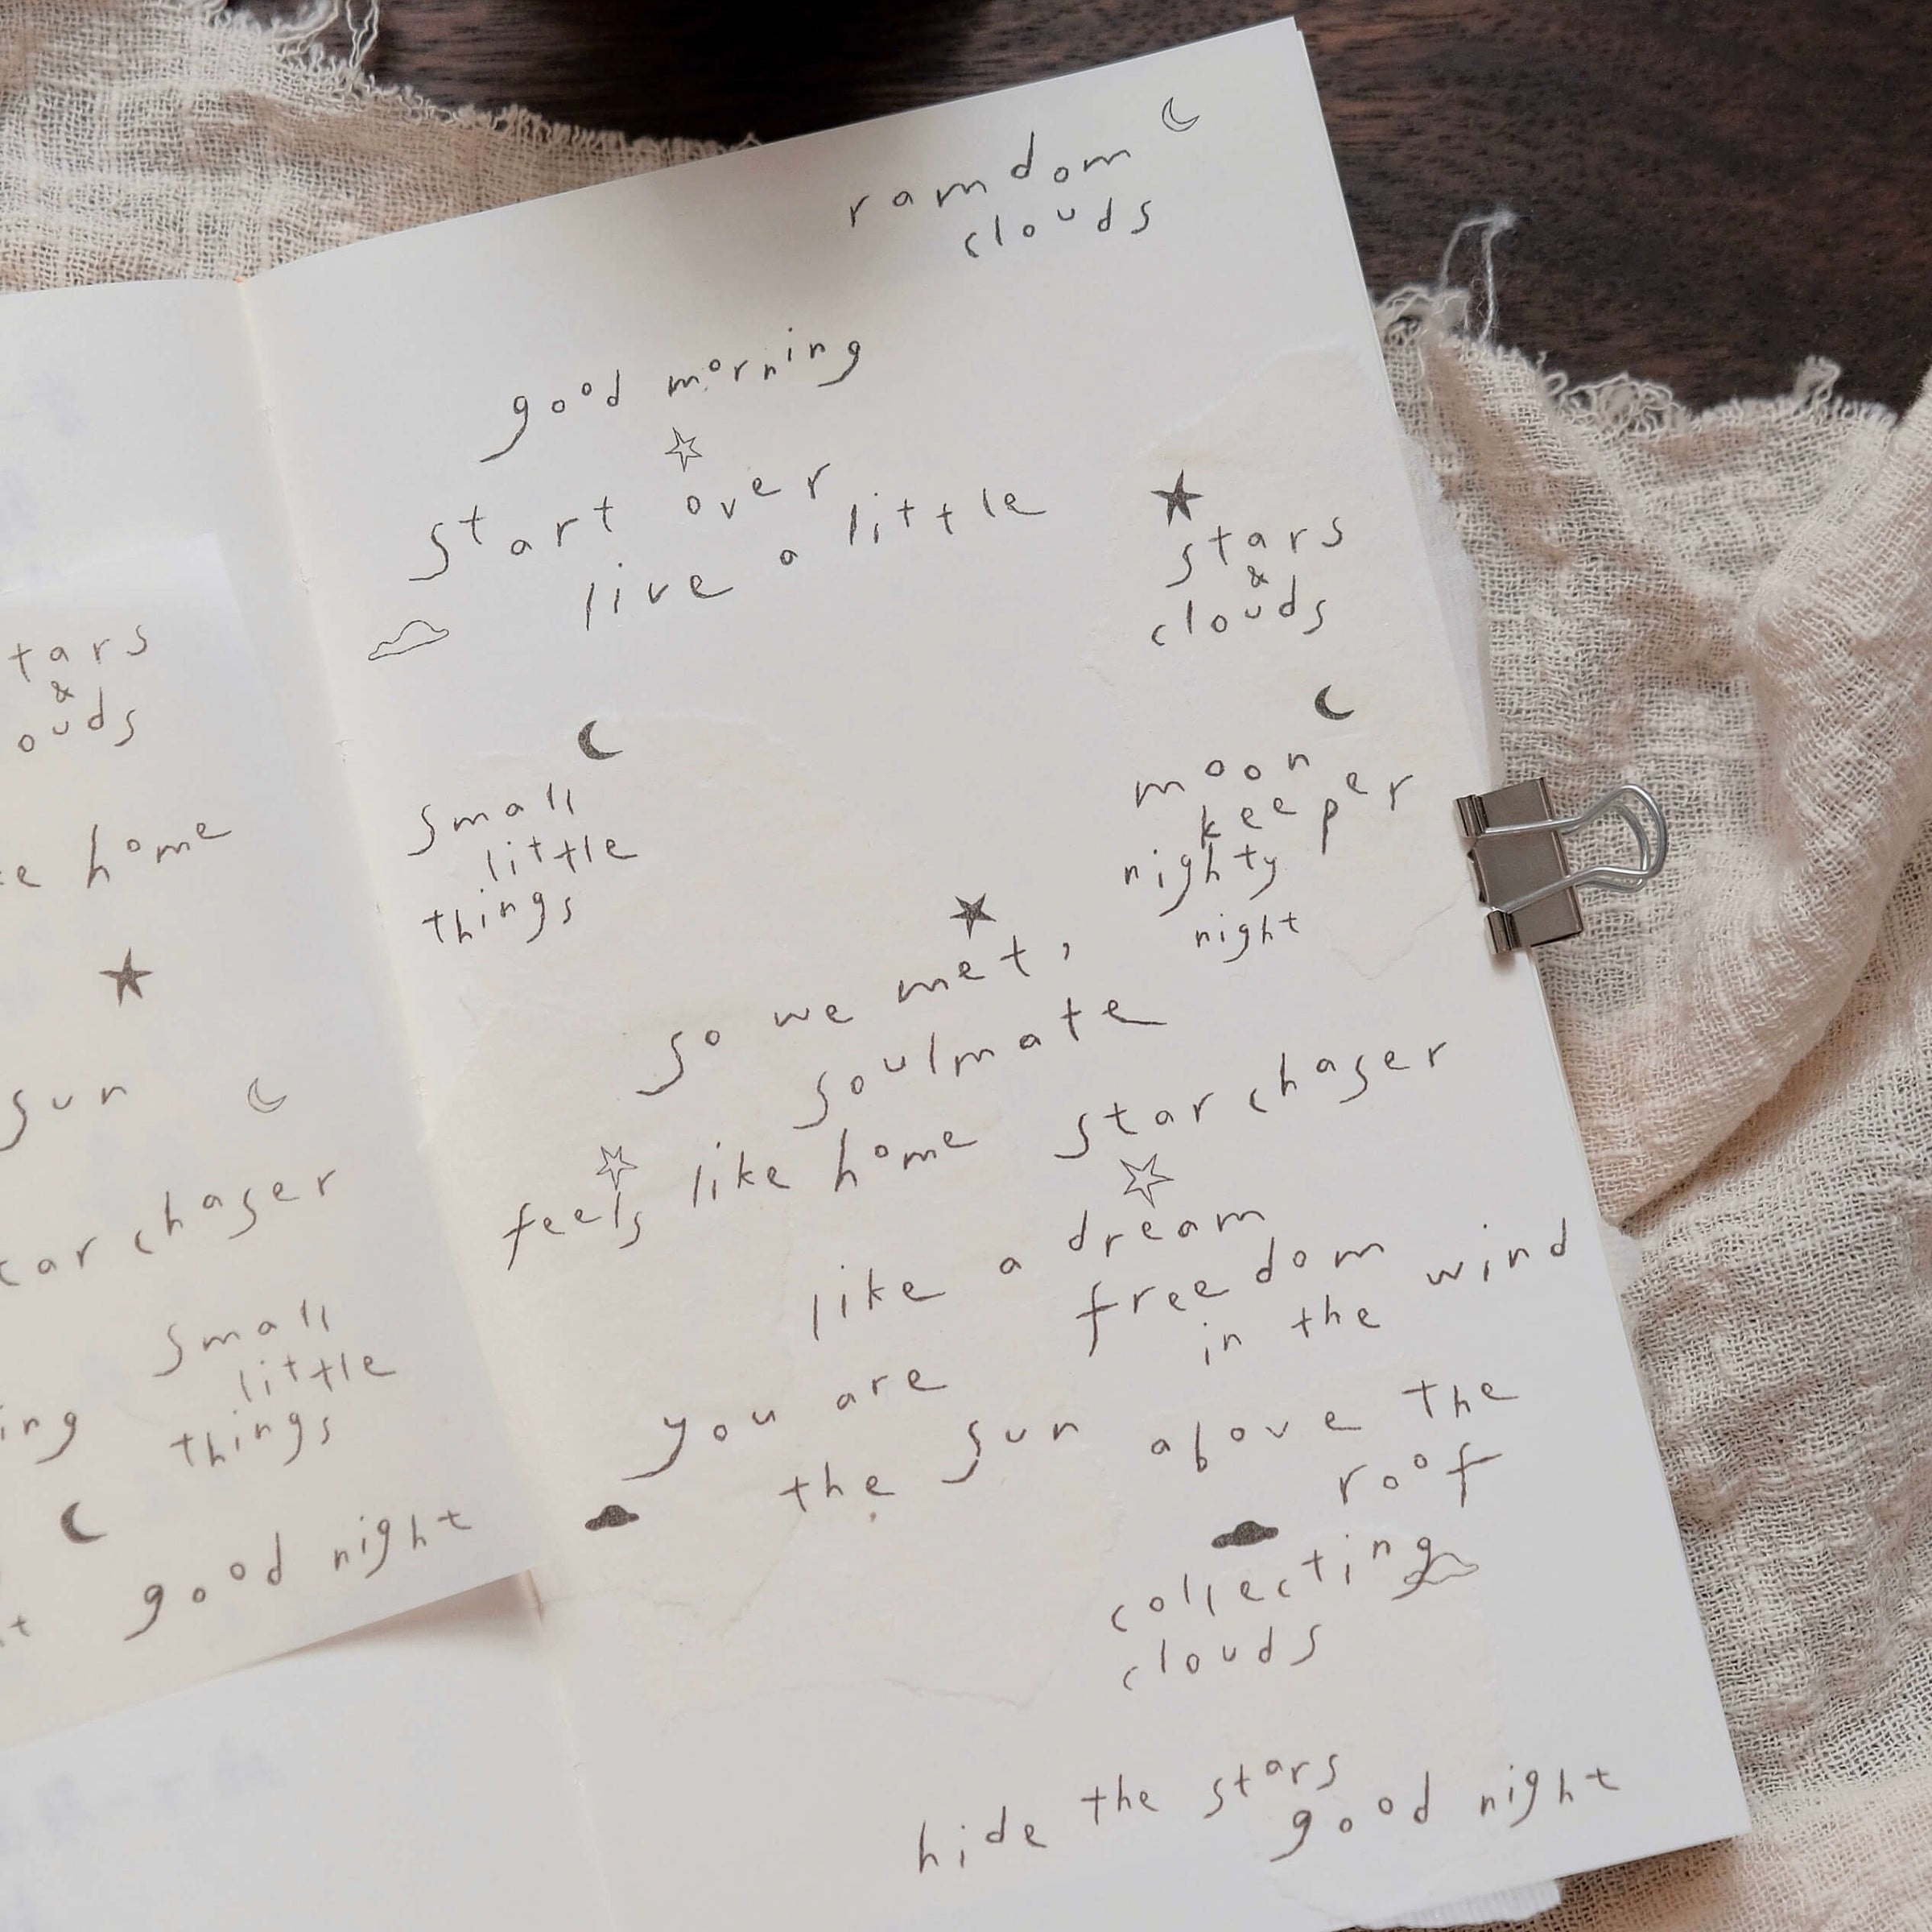 tars
&
ouds
home
sun
ar chaser
small
little
things
ing
good night
ramdom
clouds
good morning
start over
live a little
stars
&
clouds
small
little
things
moon
keeper
nighty
night
so we met,
soulmate
feels like home
star chaser
like a dream
freedom
in the wind
you are
the sun above the
roof
collecting
clouds
hide the stars
good night